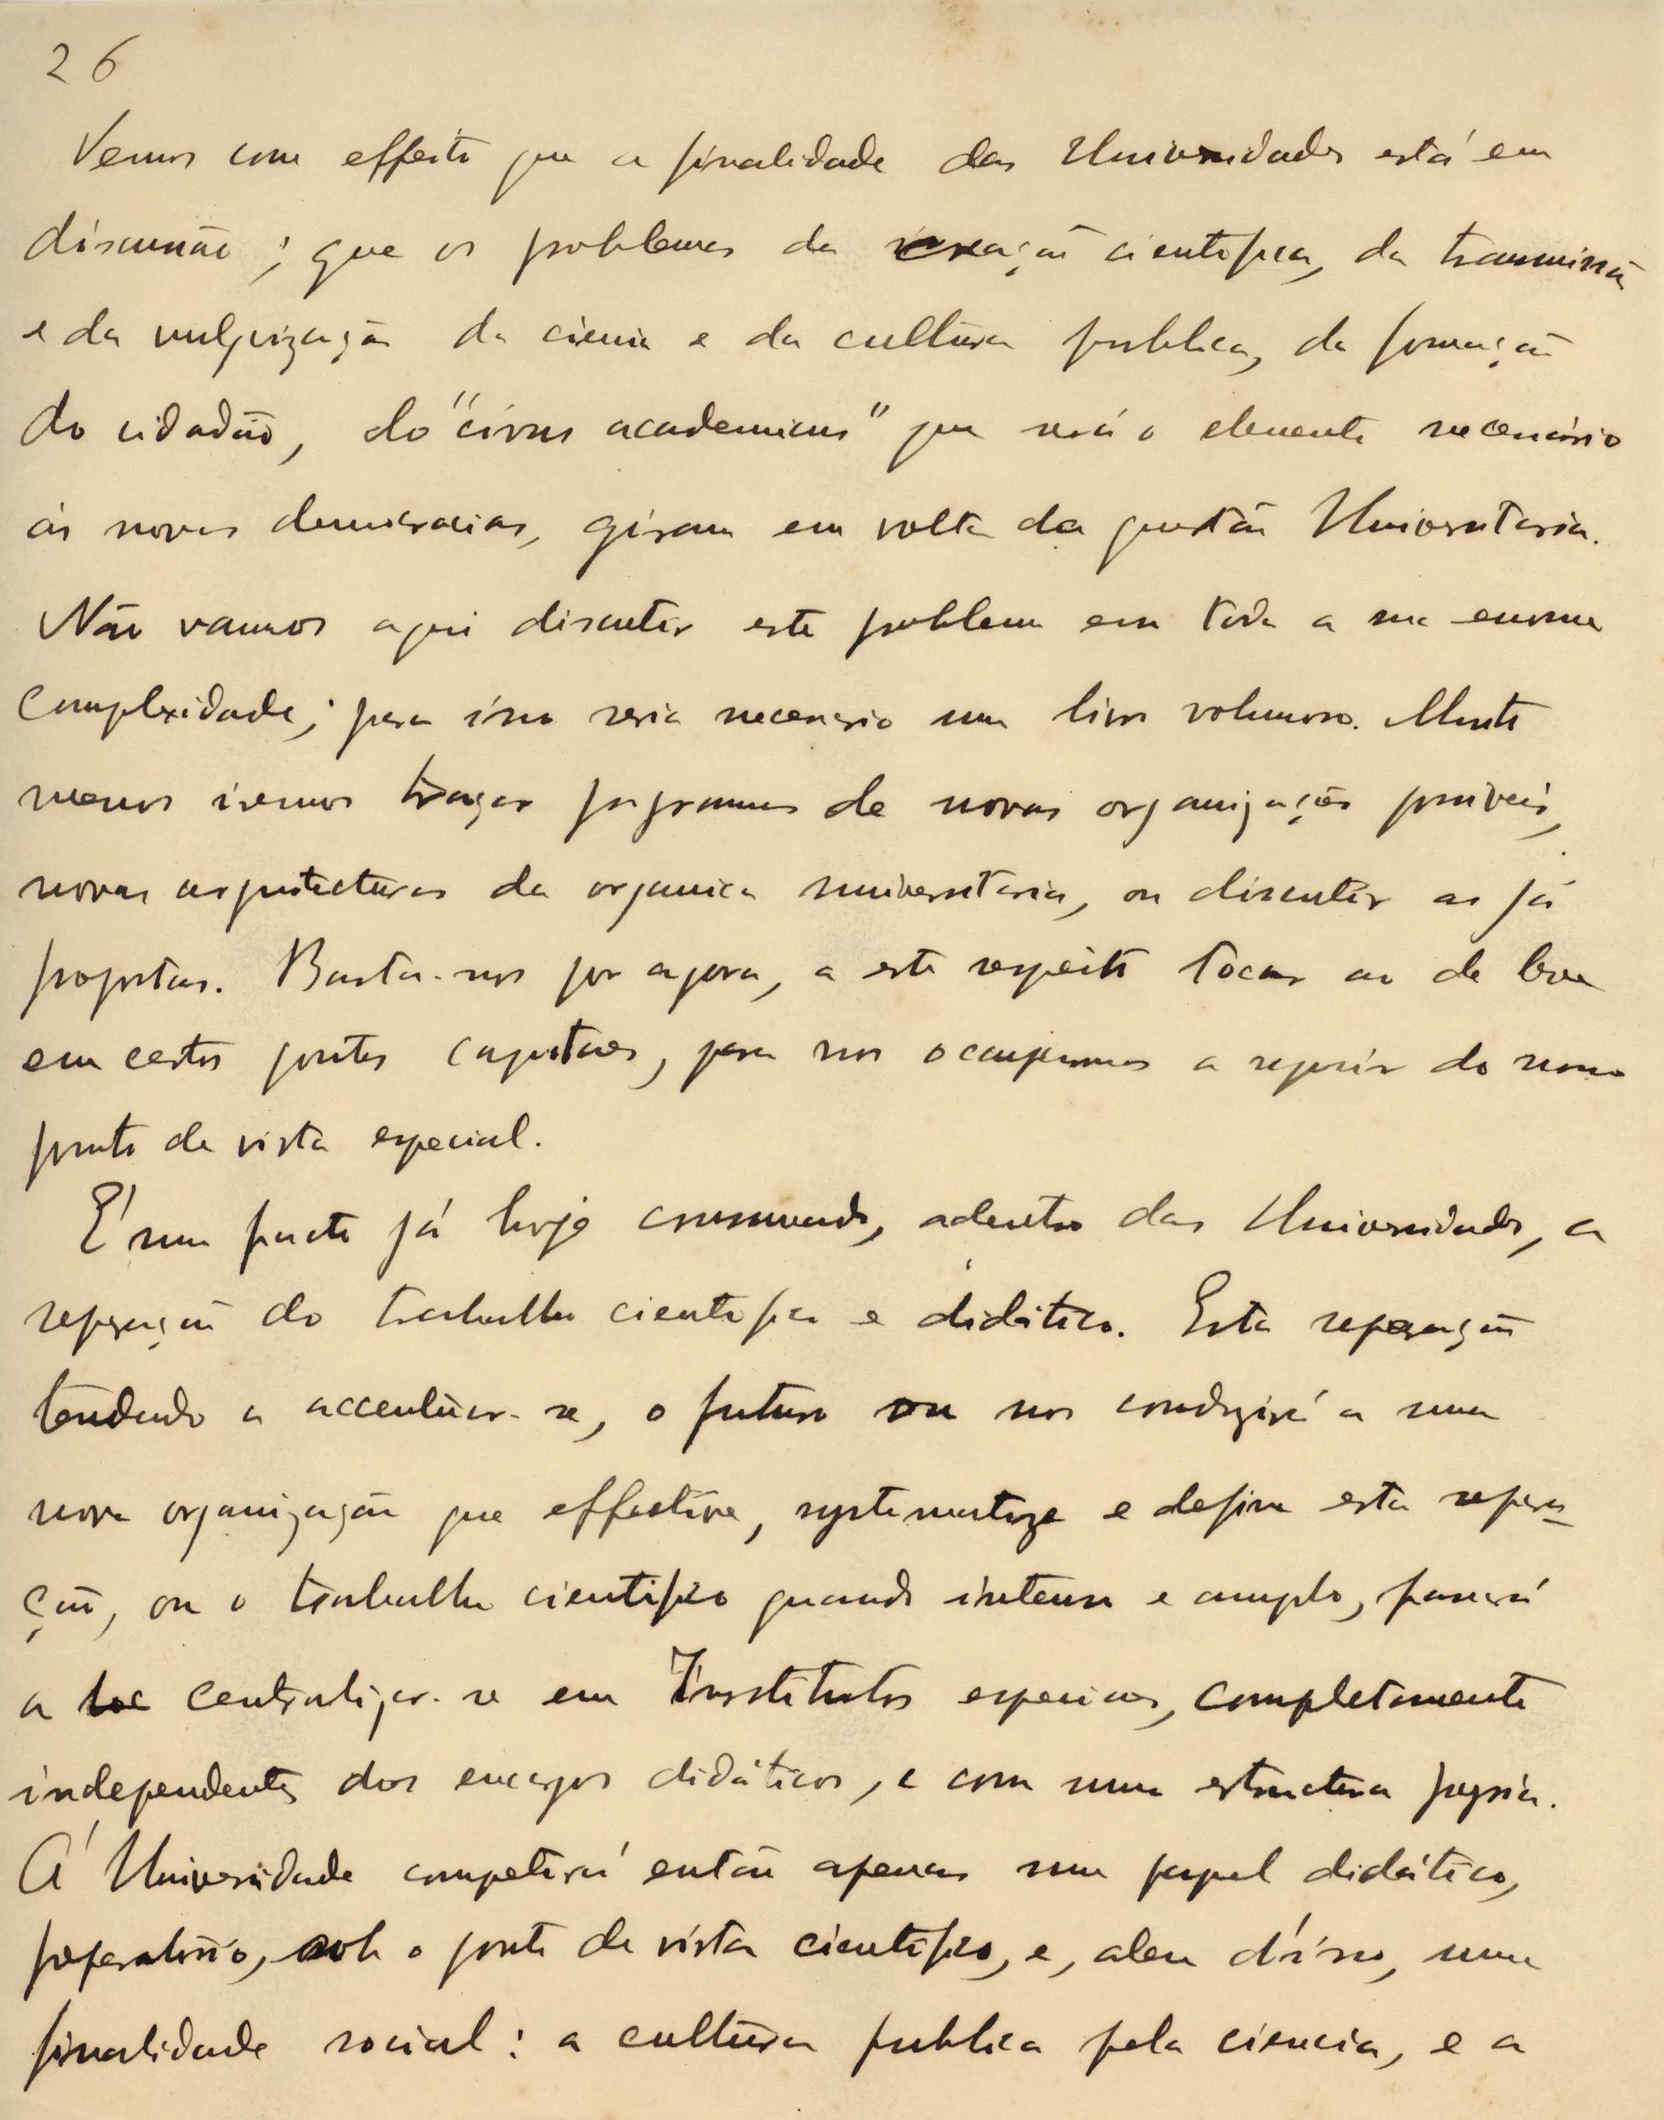 26
Vemos com effeito que a finalidade das Universidades está em
discussão; que os problemas da creação cientifica, da transmissão
e da vulgarização da ciencia e da cultura publica, da formação
do cidadão, do "civus academicus" que será o elemento necessário
ás novas democracias, giram em volta da questão Universitaria.
Não vamos aqui discutir este problema em toda a sua enorme
complexidade; para isso seria necessario um livro volumoso. Muito
menos iremos traçar programas de novas organizações possiveis,
novas arquitecturas da organica universitaria, ou discutir as já
propostas. Basta-nos por agora, a este respeito tocar ao de leve
em certos pontos capitaes, para nos occuparmos a seguir do nosso
ponto de vista especial.
É um facto já hoje consumado, adentro das Universidades, a
separação do trabalho cientifico e didático. Esta separação
tendendo a accentuar-se, o futuro ou nos conduzirá a uma
nova organização que effective, systematize e defina esta separa-
ção, ou o trabalho cientifico quando intenso e amplo, passará
a centralizar-se em Institutos especiaes, completamente
independentes dos encargos didáticos, e com uma estructura propria.
Á Universidade competirá então apenas um papel didático,
preparatório, sob o ponto de vista cientifico, e, alem d'isso, uma
finalidade social: a cultura publica pela ciencia, e a